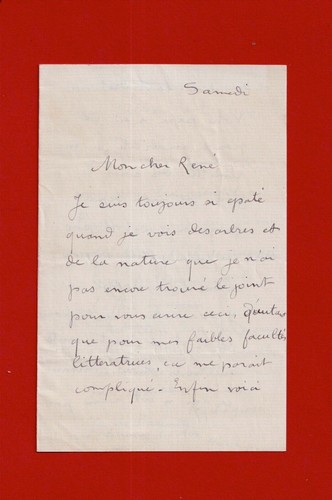 Samedi
Mon cher René
Je suis toujours si épaté
quand je vois des arbres et
de la nature que je n'ai
pas encore trouvé le joint
pour vous écrire ceci, d'autant
que pour mes faibles facultés
littératrices, ça me paraît
compliqué. Enfin voici